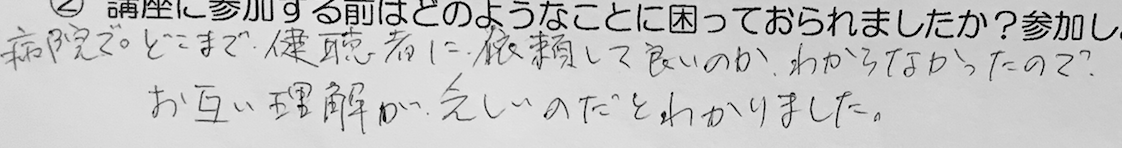 ② 講座に参加する前はどのようなことに困っておられましたか？参加し
病院で。どこまで、健聴者に、依頼して良いのか、わからなかったので、
お互い理解が、乏しいのだとわかりました。